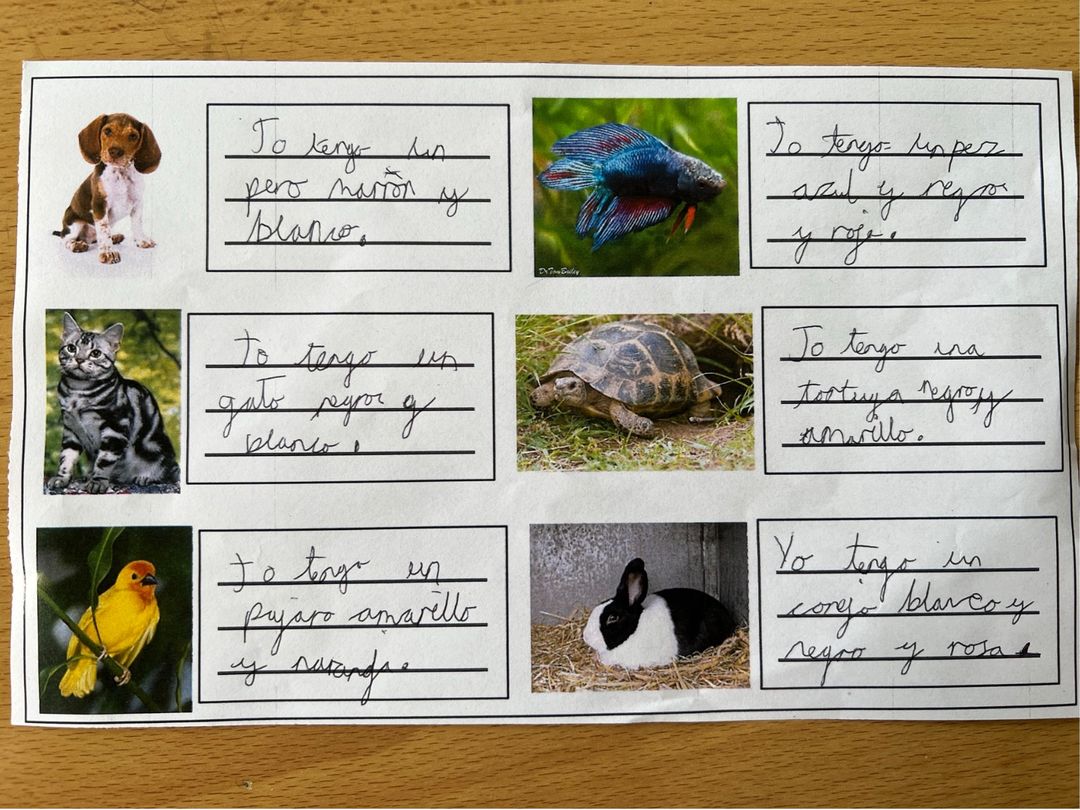 Jo tengo un
pero marrón y
blanco.
Jo tengo un pez
azul y negro
y rojo.
DrTomBailey
Jo tengo un
gato negro y
blanco.
Jo tengo una
tortuga negro y
amarillo.
Jo tengo un
pájaro amarillo
y naranja.
Yo tengo un
conejo blanco y
negro y rosa.